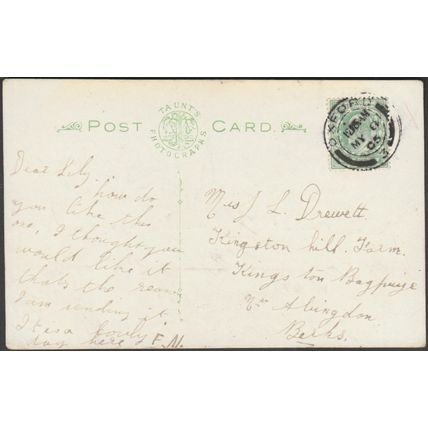 TAUNT'S
PHOTOGRAPHS
POST CARD.
OXFORD
MY
05
3
Dear Lily, how do
you like this
one, I thought you
would like it
thats the reason
I am sending it.
It is a lovely
day here F. N.
Miss L. Drewett
Kingston hill. Farm.
Kingston Bagpuize
Nr Abingdon
Berks.